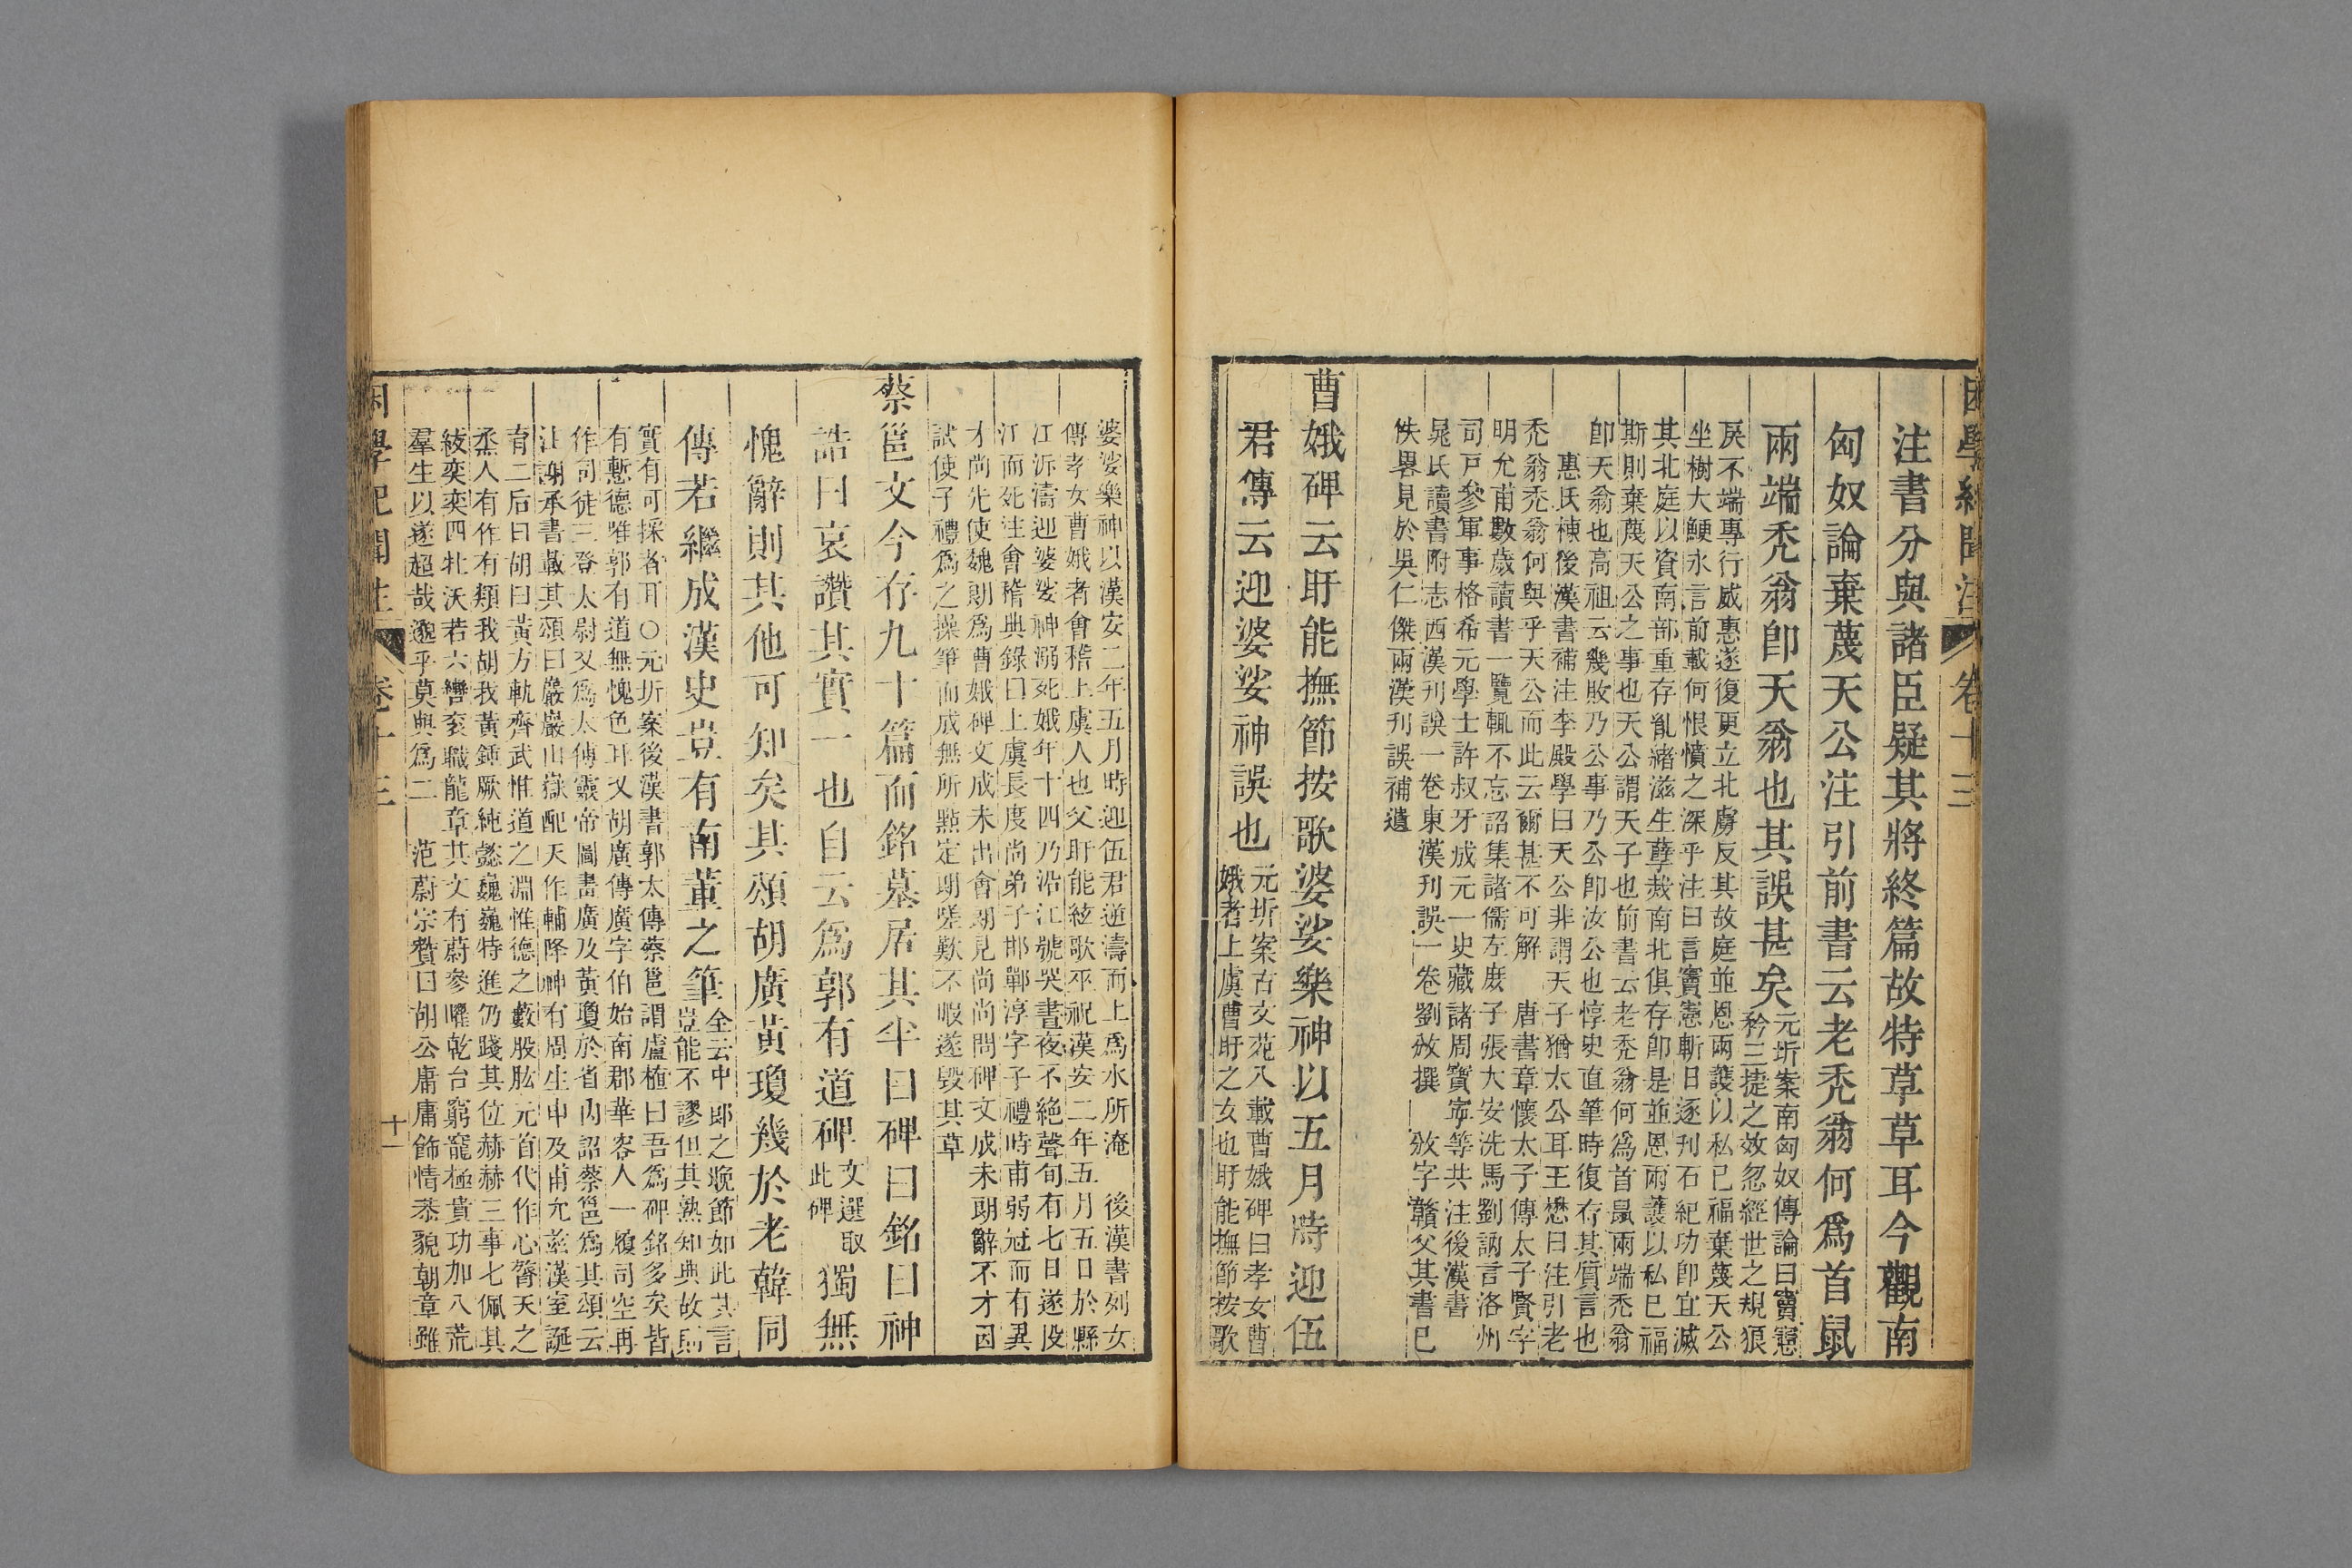 困學紀聞注 卷十三
注書分與諸臣疑其將終篇故特草草耳今觀南
匈奴論棄蔑天公注引前書云老禿翁何爲首鼠
兩端禿翁卽天翁也其誤甚矣
元圻案南匈奴傳論曰竇憲
矜三捷之效忽經世之規狼
戾不端專行威惠遂復更立北虜反其故庭並恩兩護以私已福棄蔑天公
坐樹大鯁永言前載何恨憤之深乎注曰言竇憲斬日逐刊石紀功卽宜滅
其北庭以資南部重存亂緒滋生孽栽南北俱存卽是並恩兩護以私已福
斯則棄蔑天公之事也天公謂天子也前書云老禿翁何爲首鼠兩端禿翁
卽天翁也高祖云幾敗乃公事乃公卽汝公也惇史直筆時復存其質言也
惠氏棟後漢書補注李殿學曰天公非謂天子猶太公耳王懋曰注引老
禿翁禿翁何與乎天公而此云爾甚不可解 唐書章懷太子傳太子賢字
明允甫數歲讀書一覽輒不忘詔集諸儒左庶子張大安洗馬劉訥言洛州
司戸參軍事格希元學士許叔牙成元一史藏諸周寶寧等共注後漢書
晁氏讀書附志西漢刊誤一卷東漢刊誤一卷劉攽撰 攽字贛父其書已
佚畧見於吳仁傑兩漢刊誤補遺
曹娥碑云盱能撫節按歌婆娑樂神以五月時迎伍
君傳云迎婆娑神誤也
元圻案古文苑八載曹娥碑曰孝女曹
娥者上虞曹盱之女也盱能撫節按歌
婆娑樂神以漢安二年五月時迎伍君逆濤而上爲水所淹 後漢書列女
傳孝女曹娥者會稽上虞人也父盱能絃歌巫祝漢安二年五月五日於縣
江泝濤迎婆娑神溺死娥年十四乃沿江號哭晝夜不絶聲旬有七日遂投
江而死注會稽典錄曰上虞長度尚弟子邯鄲淳字子禮時甫弱冠而有異
才尚先使魏朗爲曹娥碑文成未出會朗見尚尚問碑文成未朗辭不才因
試使子禮爲之操筆而成無所㸃定朗嗟歎不暇遂毀其草
蔡邕文今存九十篇而銘墓居其半曰碑曰銘曰神
誥曰哀讚其實一也自云爲郭有道碑
文選取
此碑
獨無
愧辭則其他可知矣其頌胡廣黃瓊幾於老韓同
傳若繼成漢史豈有南董之筆
全云中郎之晚節如此其言
豈能不謬但其熟知典故則
實有可採者耳○元圻案後漢書郭太傳蔡邕謂盧植曰吾爲碑銘多矣皆
有慙德唯郭有道無愧色耳又胡廣傳廣字伯始南郡華容人一履司空再
作司徒三登太尉又爲太傅靈帝圖畫廣及黃瓊於省內詔蔡邕爲其頌云
注謝承書載其頌曰巖巖山嶽配天作輔降神有周生申及甫允茲漢室誕
育二后曰胡曰黃方軌齊武惟道之淵惟德之藪股肱元首代作心膂天之
烝人有作有類我胡我黃鍾厥純懿巍巍特進仍踐其位赫赫三事七佩其
紱奕奕四牡沃若六轡袞職龍章其文有蔚參曜乾台窮寵極貴功加八荒
羣生以遂超哉邈乎莫與爲二 范蔚宗贊曰胡公庸庸飾情恭貌朝章雖
困學紀聞注 卷十三 十一